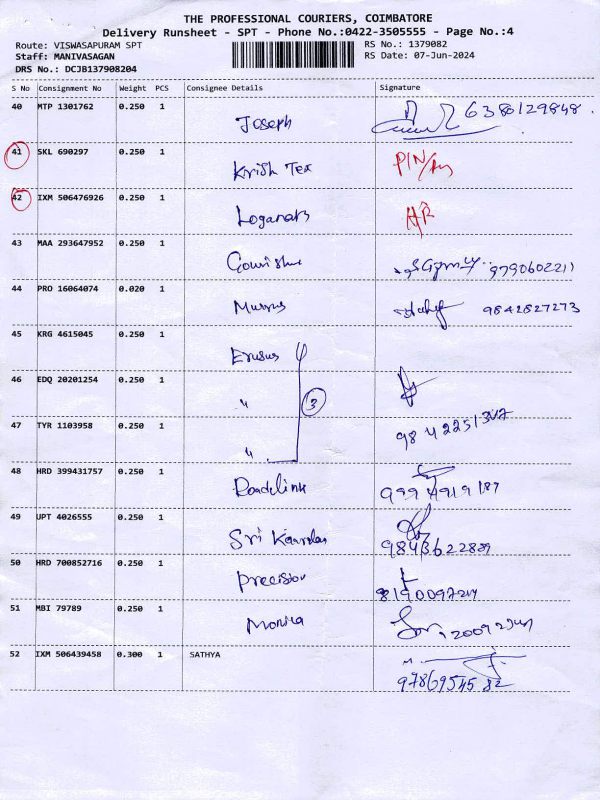 THE PROFESSIONAL COURIERS, COIMBATORE
Delivery Runsheet - SPT - Phone No.:0422-3505555 - Page No.:4
Route: VISWASAPURAM SPT RS No.: 1379082
Staff: MANIVASAGAN RS Date: 07-Jun-2024
DRS No.: DCJB137908204
S No Consignment No Weight PCS Consignee Details Signature
40 MTP 1301762 0.250 1 Joseph 6380129848
41 SKL 690297 0.250 1 Krish Tex
42 IXM 506476926 0.250 1 Loganath
43 MAA 293647952 0.250 1 9790602211
44 PRO 16064074 0.020 1 9842827273
45 KRG 4615045 0.250 1
46 EDQ 20201254 0.250 1 " 3
47 TYR 1103958 0.250 1 "
48 HRD 399431757 0.250 1 Roadlink
49 UPT 4026555 0.250 1 Sri
50 HRD 700852716 0.250 1 Precision
51 MBI 79789 0.250 1 Monica
52 IXM 506439458 0.300 1 SATHYA